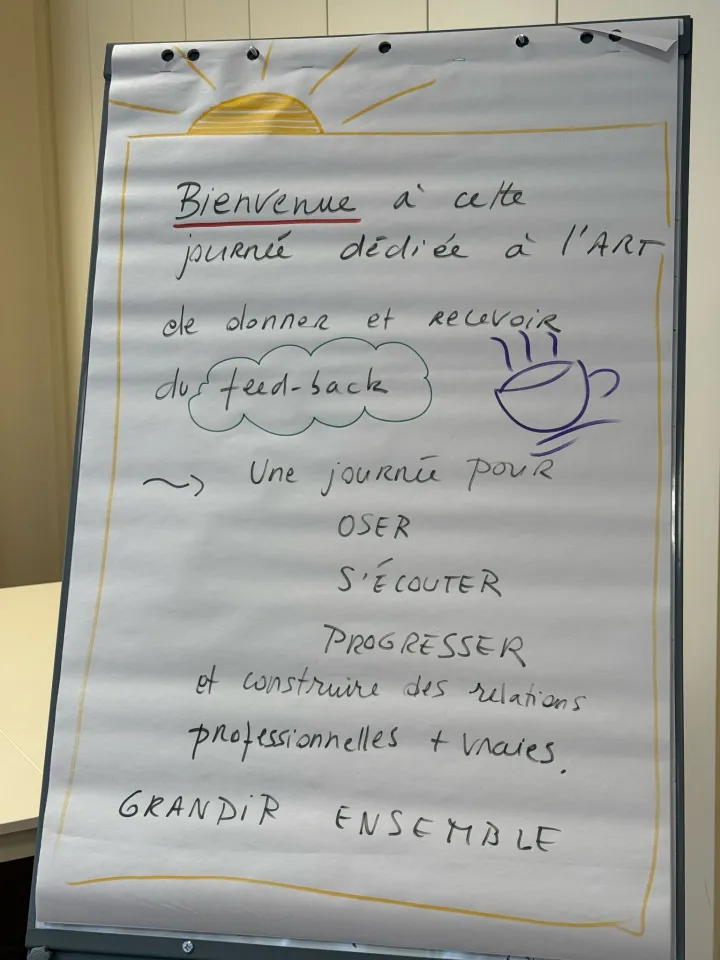 Bienvenue à cette
journée dédiée à l'ART
de donner et recevoir
du feed-back
~> Une journée pour
OSER
S'ÉCOUTER
PROGRESSER
et construire des relations
professionnelles + vraies.
GRANDIR ENSEMBLE